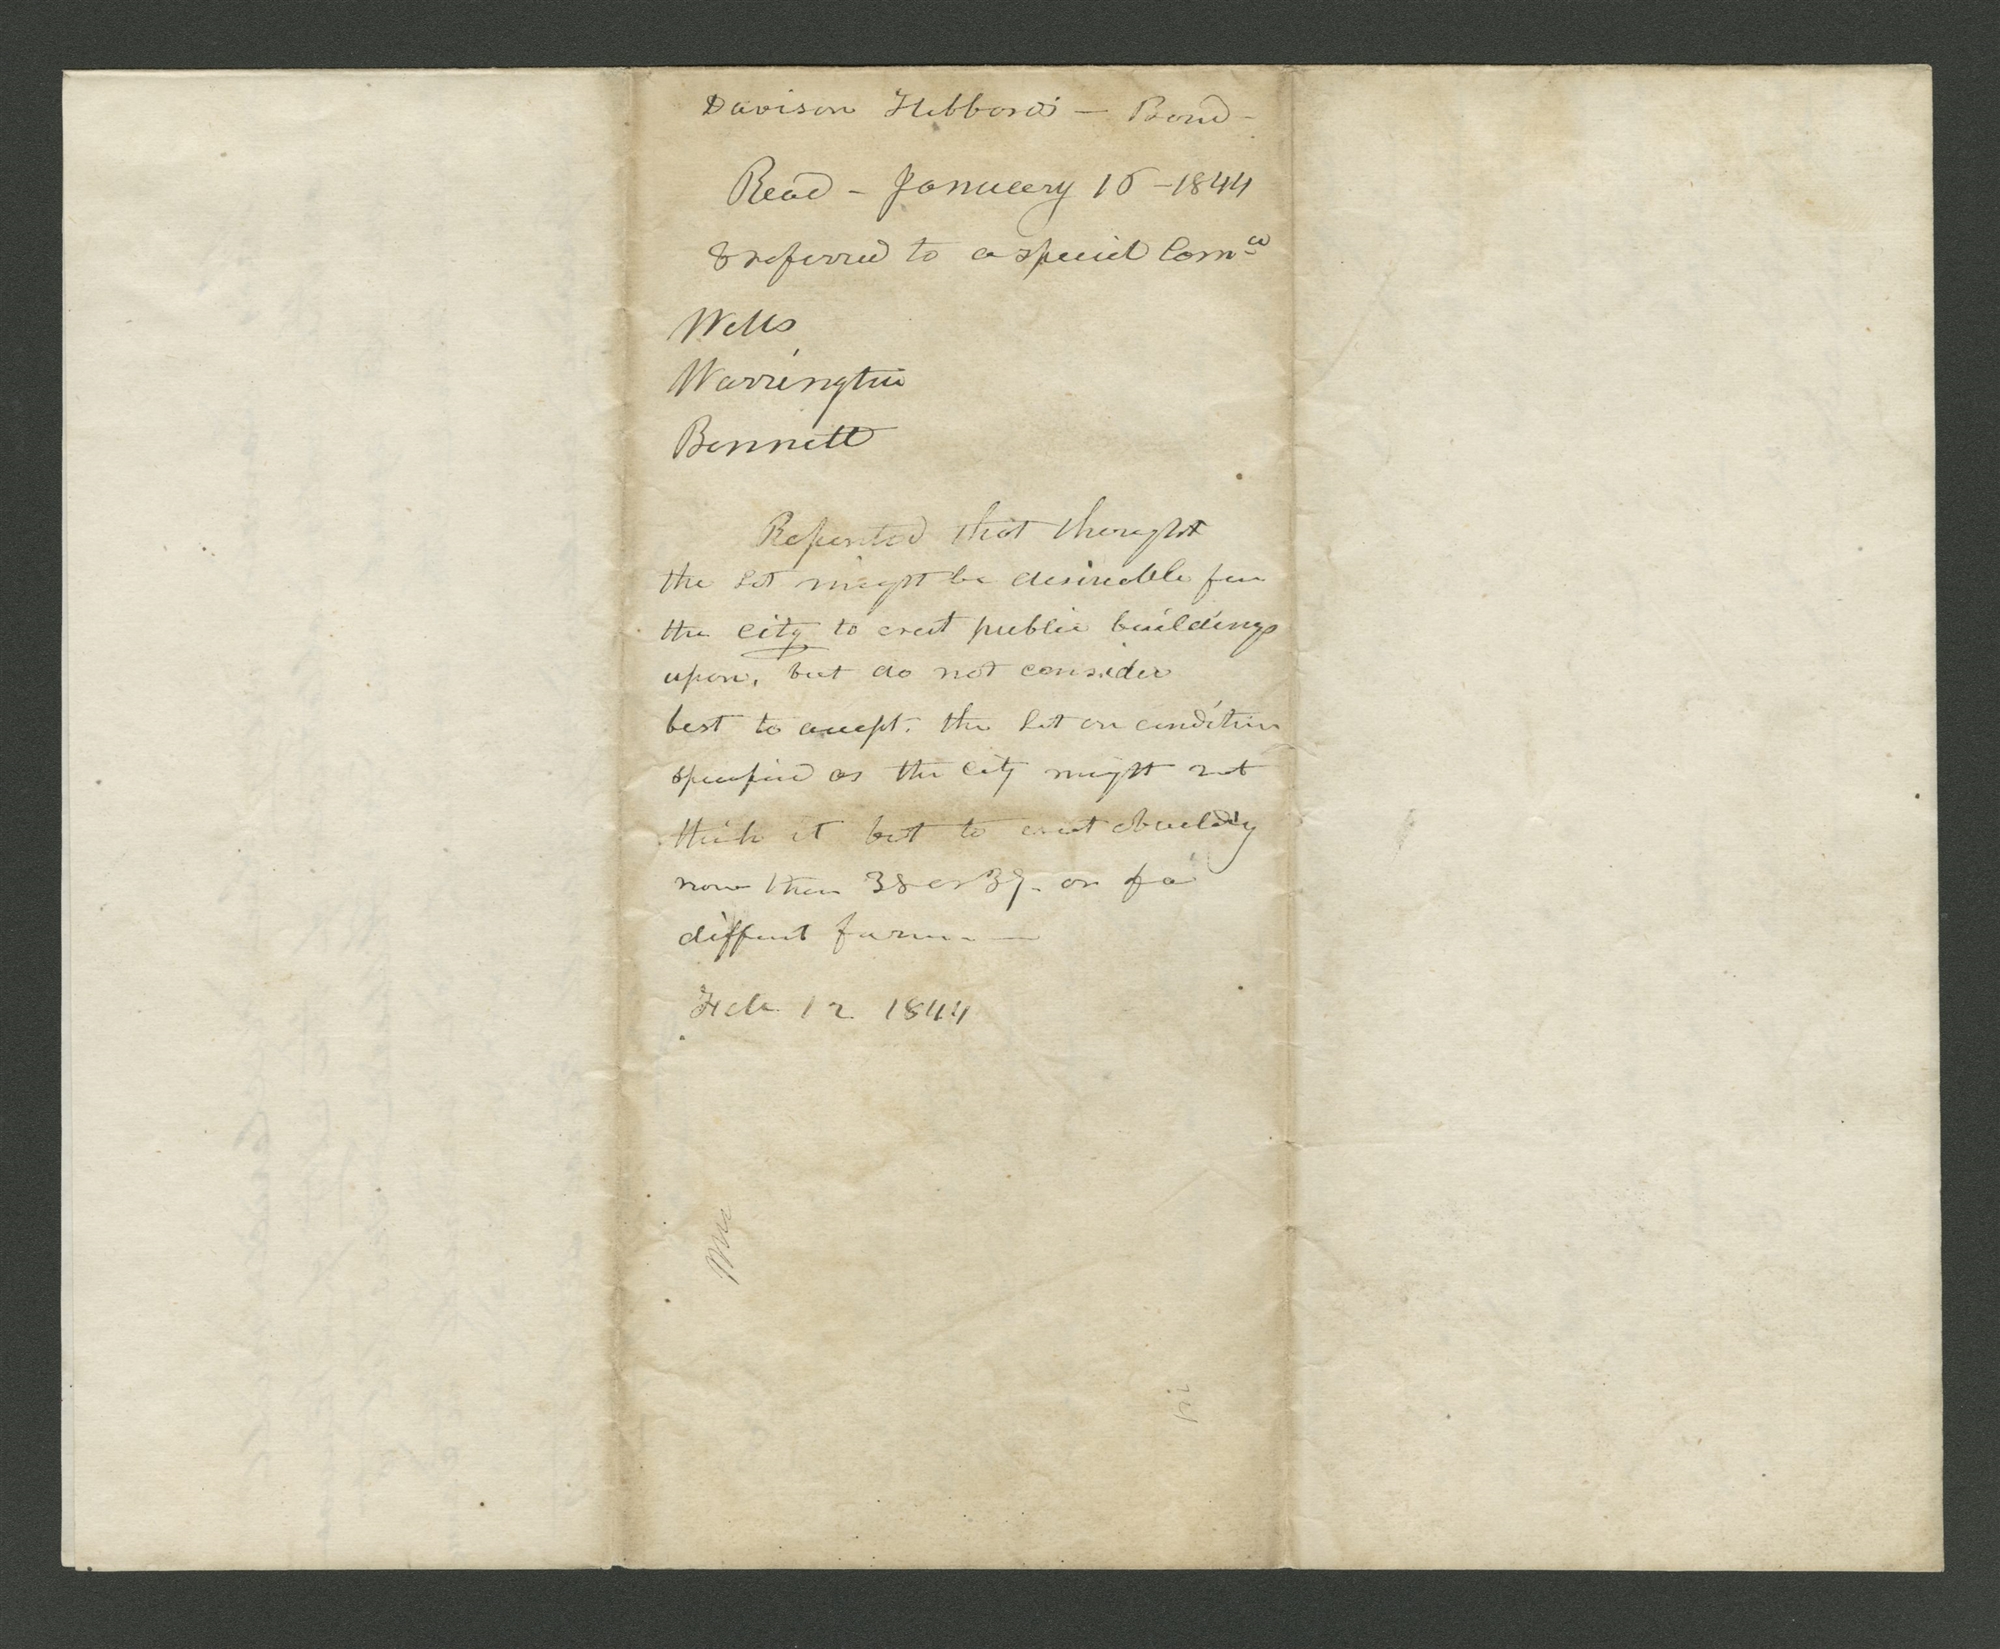 Davison Hibbards — Bond —
Read — January 16 — 1844
& referred to a special Com
Wells
Warrington
Bennett
Reported that thought
the Lot might be desireable for
the city to erect public buildings
upon, but do not consider
best to accept. the Lot on condition
specified as the city might not
think it best to erect a building
now then 38 or 39. on
diffent
Feb 12 1844